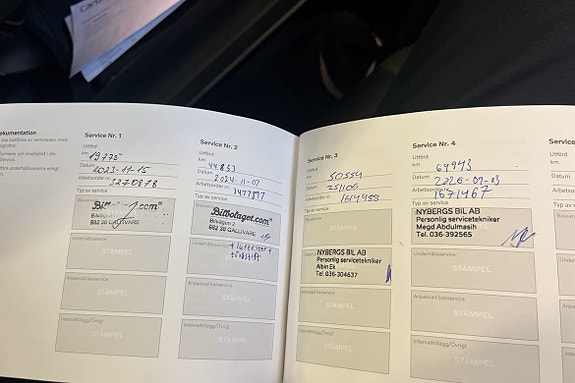 Service Nr. 1
Utförd
km 19775
Datum 2023-11-15
Arbetsorder nr. 3270878
Typ av service
Bilbolaget.com
Bilvägen 2
982 38 GÄLLIVARE
Underhållsservice
STÄMPEL
Anpassad basservice
STÄMPEL
Intervalltillägg/Övrigt
STÄMPEL
Service Nr. 2
Utförd
km 44.833
Datum 2024-11-07
Arbetsorder nr.
Typ av service
Bilbolaget.com
Bilvägen 2
982 38 GÄLLIVARE
STÄMPEL
Anpassad basservice
STÄMPEL
Intervalltillägg/Övrigt
STÄMPEL
Service Nr. 3
Utförd
km 50554
Datum 251106
Arbetsorder nr. 1614988
Typ av service
STÄMPEL
NYBERGS BIL AB
Personlig servicetekniker
Albin Ek
Tel. 036-304637
Anpassad basservice
STÄMPEL
Intervalltillägg/Övrigt
STÄMPEL
Service Nr. 4
Utförd
km 64943
Datum
Arbetsorder nr. 1671467
Typ av service
NYBERGS BIL AB
Personlig servicetekniker
Megd Abdulmasih
Tel. 036-392565
Underhållsservice
STÄMPEL
Anpassad basservice
STÄMPEL
Intervalltillägg/Övrigt
STÄMPEL